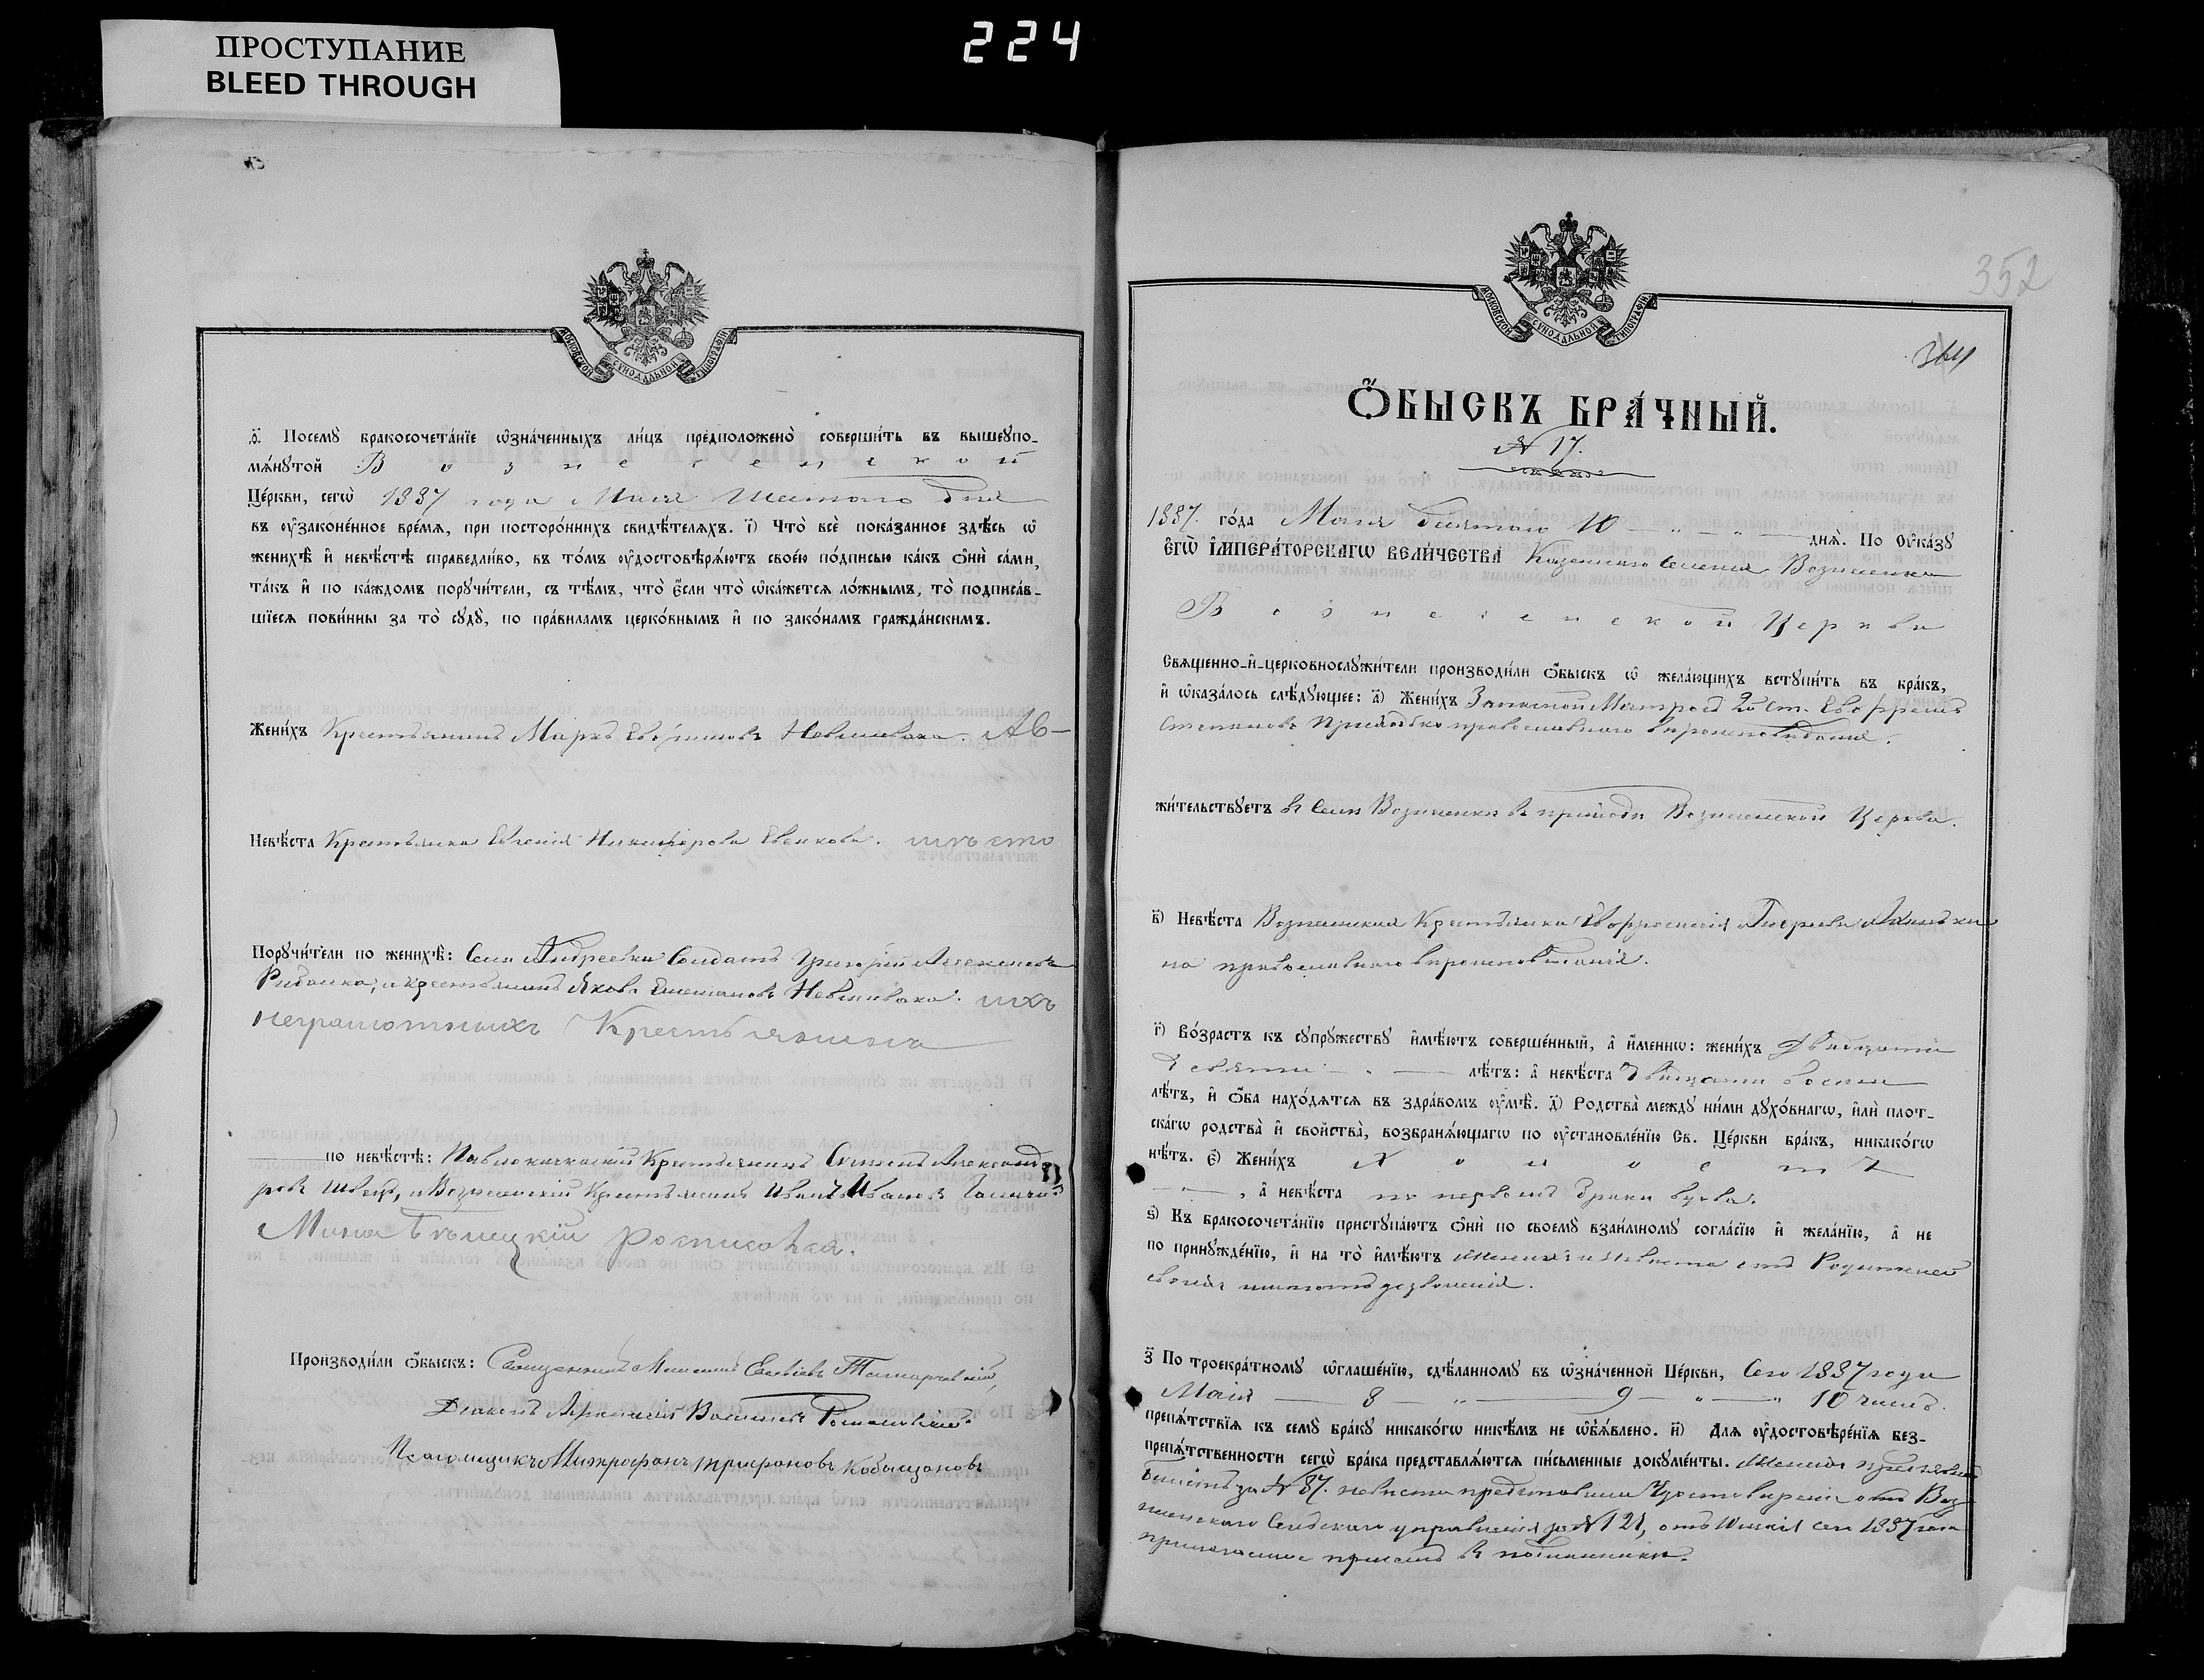 ПРОСТУПАНИЕ
BLEED THROUGH
224
МОСКОВСКОЙ СѴНОДАЛЬНОЙ ТИПОГРАФІИ
ѳ҃. Посемꙋ бракосочета́нїе ѡ҆зна́ченныхъ ли́цъ предположено̀ соверши́ть въ вышеꙋпо-
мѧ́нꙋтой Вознесенской
Це́ркви, сегѡ̀ 1887 года Мая Шестого дня
въ ᲂу҆законе́нное вре́мѧ, при посторо́ннихъ свидѣ́телѧхъ. і҃) Что̀ всѐ пока́занное здѣ́сь ѡ҆
женихѣ̀ и҆ невѣ́стѣ справедли́во, въ то́мъ ᲂу҆достовѣрѧ́ютъ свое́ю по́дписью ка́къ ѻ҆нѝ са́ми,
та́къ и҆ по ка́ждомъ порꙋчи́тели, съ тѣ́мъ, что̀ є҆́сли что̀ ѡ҆ка́жетсѧ ло́жнымъ, то̀ подписа́в-
шїесѧ пови́нны за то̀ сꙋдꙋ̀, по пра́виламъ церко́внымъ и҆ по зако́намъ гражда́нскимъ.
Жени́хъ Крестьянинъ Маркъ Евфимовъ
Невѣ́ста Крестьянка Евгенія Никифорова Евенкова. вмѣсто
Порꙋчи́тели по женихѣ̀: Села Андреевки Солдатъ Григорій Алексеевъ
Рибалка, и крестьянинъ Яковъ ихъ
неграмотныхъ Крестьянинъ
по невѣ́стѣ: Крестьянинъ Семенъ Александ-
ровъ Швецъ, и Вознесенскій Крестьянинъ Иванъ Ивановъ
Мина росписовся.
Производи́ли ѻ҆́быскъ: Священникъ
Діаконъ
Псаломщикъ Митрофанъ Трифоновъ Кобыщановъ
352
364
МОСКОВСКОЙ СѴНОДАЛЬНОЙ ТИПОГРАФІИ
Ѻ҆́БЫСКЪ БРА́ЧНЫЙ.
№ 17.
1887. го́да Мая десятаго 10 днѧ̀. По ᲂу҆ка́зꙋ
є҆гѡ̀ і҆мпера́торскагѡ вели́чества Казеннаго Селенія Вознесенки
Вознесенской Церкви
Сщ҃е́нно-и҆-церковнослꙋжи́тели производи́ли ѻ҆́быскъ ѡ҆ жела́ющихъ встꙋпи́ть въ бра́къ,
и҆ ѡ҆каза́лось слѣ́дꙋющее: а҃) Жени́хъ Запасной Матросъ 2й ст. Евфремъ
Степановъ Приходько православнаго вѣроисповѣданія.
жи́тельствꙋетъ въ Селѣ Вознесенки въ приходѣ Вознесенской Церкви.
в҃) Невѣ́ста Вознесенская Крестьянка Евфросинія
на православнаго вѣроисповѣданія.
г҃) Во́зрастъ къ сꙋпрꙋ́жествꙋ и҆мѣ́ютъ соверше́нный, а҆ и҆́меннѡ: жени́хъ двадцати
девяти лѣ́тъ: а҆ невѣ́ста двадцати восьми
лѣ́тъ, и҆ ѻ҆́ба нахо́дѧтсѧ въ здра́вомъ ᲂу҆мѣ̀. д҃) Родства̀ междꙋ̀ ни́ми дꙋхо́внагѡ, и҆лѝ пло́т-
скагѡ родства̀ и҆ сво́йства, возбранѧ́ющагѡ по ᲂу҆становле́нїю Св. Це́ркви бра́къ, никако́гѡ
нѣ́тъ. є҃) Жени́хъ Холостъ
, а҆ невѣ́ста по первомъ браки вдова.
ѕ҃) Къ бракосочета́нїю пристꙋпа́ютъ ѻ҆нѝ по своемꙋ̀ взаи́мномꙋ согла́сїю и҆ жела́нїю, а҆ не
по принꙋжде́нїю, и҆ на то̀ и҆мѣ́ютъ женихъ и невѣста отъ Родителей
своихъ имеютъ дозволенія.
з҃ По троекра́тномꙋ ѡ҆глаше́нїю, сдѣ́ланномꙋ въ ѡ҆зна́ченной Це́ркви, Сего 1887 года
Мая 8 " 9 " 10 чиселъ.
препѧ́тствїѧ къ семꙋ̀ бра́кꙋ никако́гѡ никѣ́мъ не ѡ҆б̾ѧ́влено. и҃) Длѧ ᲂу҆достовѣре́нїѧ без-
препѧ́тственности сегѡ̀ бра́ка представлѧ́ютсѧ пи́сьменные докꙋме́нты. Женихъ предъявилъ
билетъ за № 87. невѣста представила Удостовереніе отъ Воз-
несенскаго Сельскаго управленія за № 121, отъ сего 1887 года